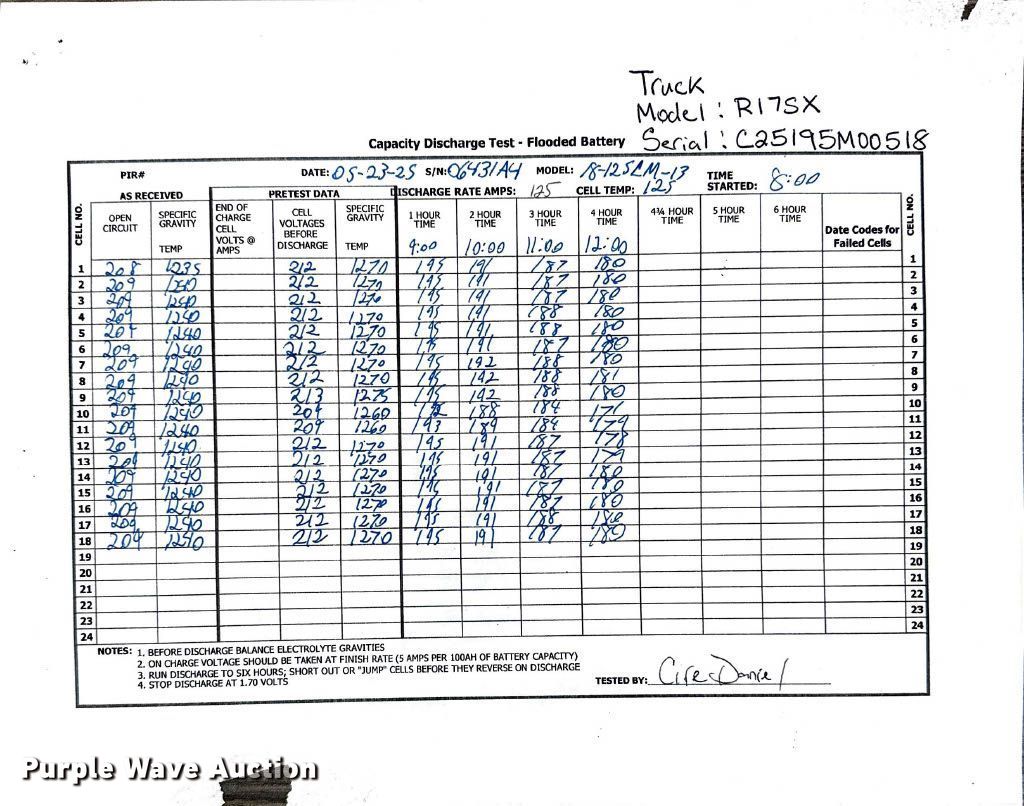 Truck
Model: R17SX
Serial: C25195M00518
Capacity Discharge Test - Flooded Battery
PIR# DATE: 05-23-25 S/N: 06431A4 MODEL: 18-125LM-13 TIME STARTED: 8:00
AS RECEIVED PRETEST DATA DISCHARGE RATE AMPS: 125 CELL TEMP: 125
CELL NO. OPEN CIRCUIT SPECIFIC GRAVITY TEMP END OF CHARGE CELL VOLTS @ AMPS CELL VOLTAGES BEFORE DISCHARGE SPECIFIC GRAVITY TEMP 1 HOUR TIME 2 HOUR TIME 3 HOUR TIME 4 HOUR TIME 4¾ HOUR TIME 5 HOUR TIME 6 HOUR TIME Date Codes for Failed Cells CELL NO.
9:00 10:00 11:00 12:00
1 208 1235 212 1270 195 191 187 180 1
2 209 1240 212 1270 195 191 187 180 2
3 209 1240 212 1270 195 191 187 180 3
4 209 1240 212 1270 195 191 188 180 4
5 209 1240 212 1270 195 191 188 180 5
6 209 1240 212 1270 195 191 187 180 6
7 209 1240 212 1270 195 192 188 180 7
8 209 1240 212 1270 195 192 188 181 8
9 209 1240 213 1275 195 192 188 180 9
10 209 1240 209 1260 188 184 171 10
11 209 1240 209 1260 193 189 184 179 11
12 209 1240 212 1270 195 191 187 178 12
13 209 1240 212 1270 195 191 187 179 13
14 209 1240 212 1270 195 191 187 180 14
15 209 1240 212 1270 195 191 187 180 15
16 209 1240 212 1270 195 191 187 180 16
17 209 1240 212 1270 195 191 188 180 17
18 209 1240 212 1270 195 191 187 180 18
19 19
20 20
21 21
22 22
23 23
24 24
NOTES: 1. BEFORE DISCHARGE BALANCE ELECTROLYTE GRAVITIES
2. ON CHARGE VOLTAGE SHOULD BE TAKEN AT FINISH RATE (5 AMPS PER 100AH OF BATTERY CAPACITY)
3. RUN DISCHARGE TO SIX HOURS; SHORT OUT OR "JUMP" CELLS BEFORE THEY REVERSE ON DISCHARGE
4. STOP DISCHARGE AT 1.70 VOLTS
TESTED BY:
Purple Wave Auction